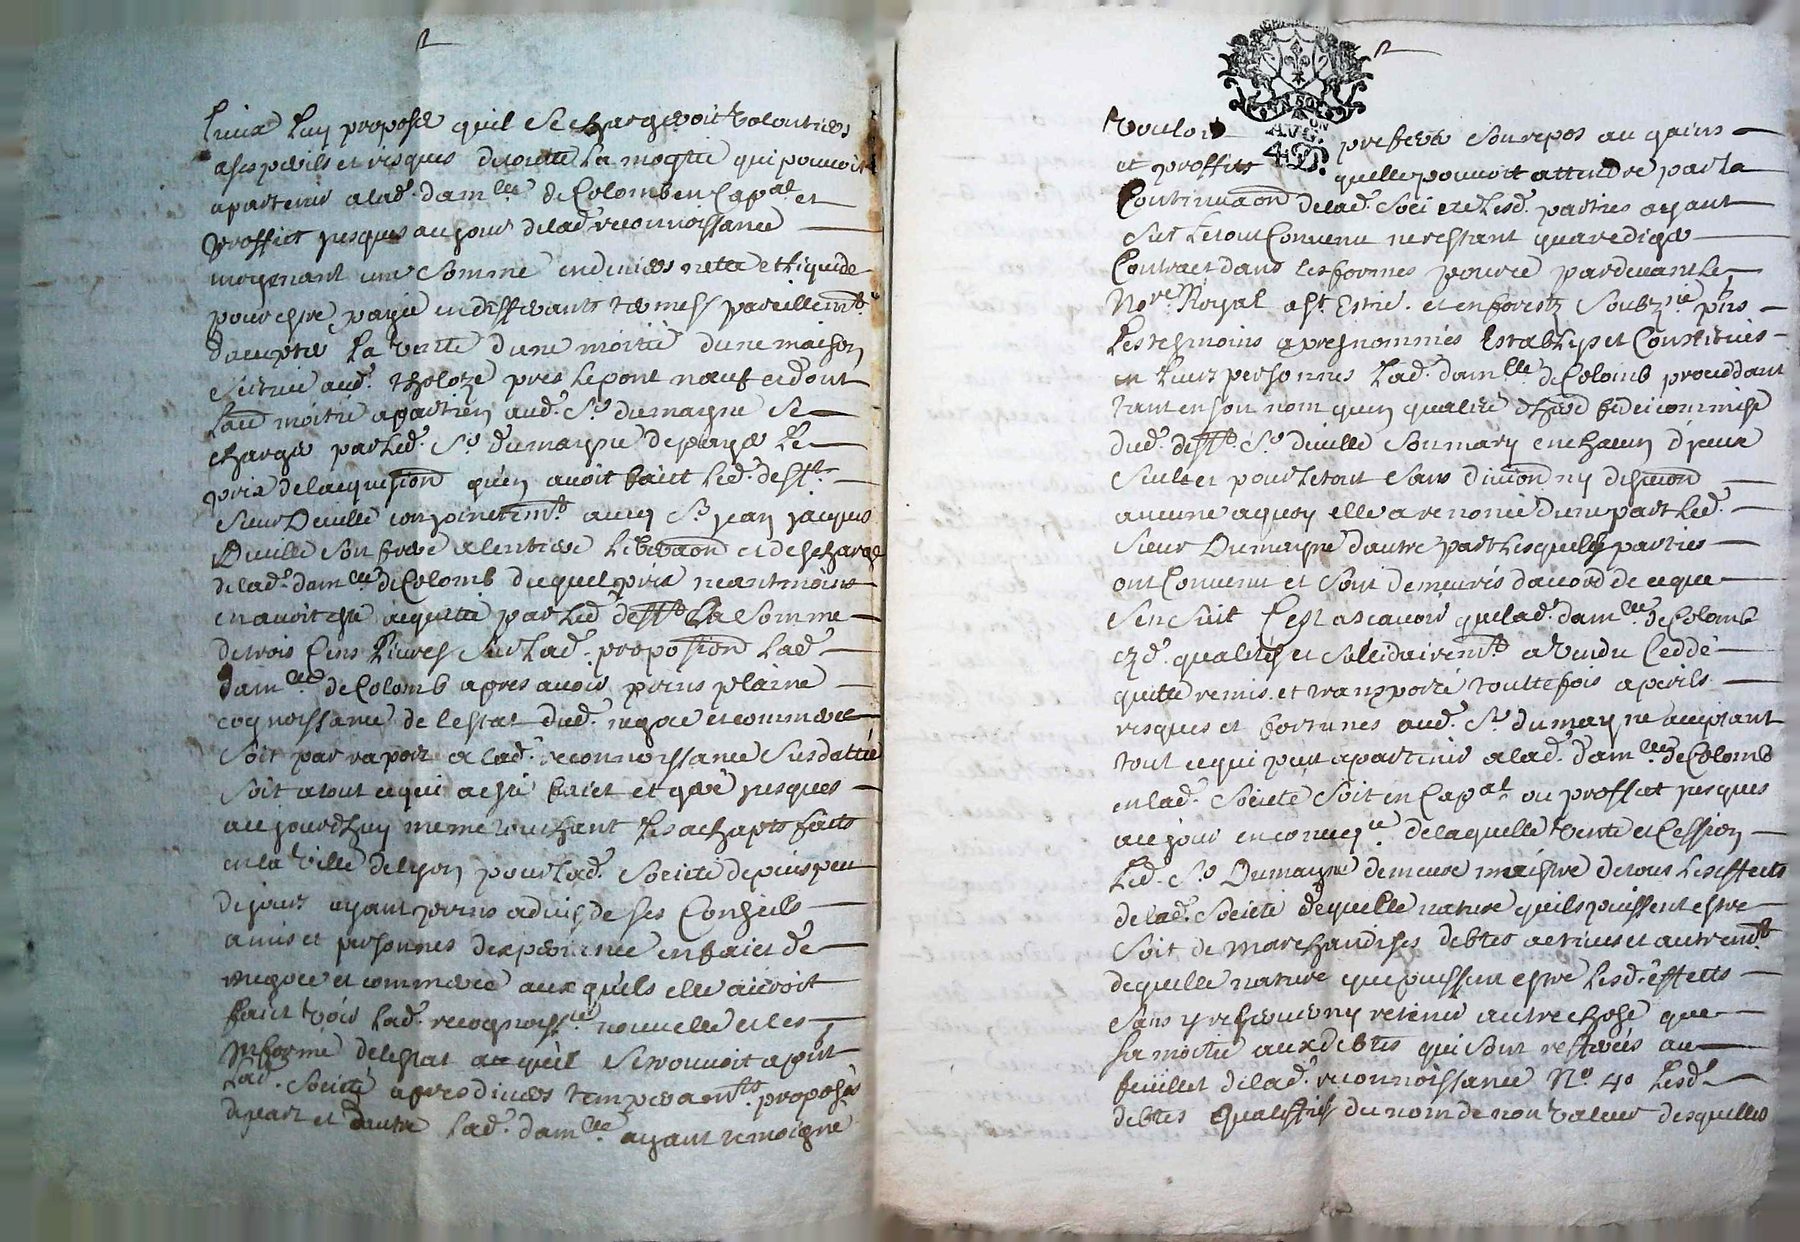 luy propose quil se chargeroit volontiers
a ses perils et risques de toutte la mogtie qui pouvoit
apartenir a lad. damlle de Colomb en Capal et
proffict jusques au jour de lad. reconnoissance
moyenant une somme en deniers nette et liquide
pour estre payée en differants termes pareillemt
daccepter la vente dune moitié dune maison
scituée aud. tholoze pres le pont neuf et dont
laue moitie apartien aud. Sr. dumayne se
charge par led. Sr. dumayne de payer le
prix de lacquision quen avoit faict led. defft.
Sieur Deville conjoinctemt. avecq Sr. jean jacques
Deville son frere a lentiere liberaon et descharge
de lad. damlle de Colomb duquel prix neantmoins
en avoit esté acquitté par led. defft. la somme
de trois cens livres sur lad. proposion lad.
damlle. de Colomb apres avoir prins plaine
cognoissance de lestat dud. negoce et commerce
soit par raport a lad. reconnoissance susdattée
soit a tout ce qui a esté faict et geré jusques
au jourdhuy meme touchant les achapts faits
en la ville de lyon pour lad. societé depuis peu
de jours ayant prins advis de ses Conseils
amis et personnes dexperience en faict de
negoce et commerce aux quels elle auroit
faict voir lad. recognoissce nouvelle et les
informé de lestat au quel se trouvoit apnt
lad. societé apres divers temperaonts. proposés
de part et dautre lad. damlle ayant temoigné
vouloir preferer son repos au gains
et proffits quelle pouvoit attendre par la
Continuaon de lad. Societé lesd. parties ayant
sur le tout Convenu ne restant qua rediger
Contract dans les formes pource pardevant le
Nore. Royal et en forestz soubzné. pns
les tesmoins apres nommés establys et Constitués
en leurs personnes lad. damlle. de Colomb proceddant
tant en son nom quen qualité dhere fideicommise
dud. defft. Sr. deville son mary en chacun djceux
seul et pour le tout sans divion ny discuon
aucune a quoy elle a renoncé dune part led.
Sieur Dumayne dautre part lesquelles parties
ont Convenu et sont demeurés dacord de ce que
sensuit Cest ascavoir que lad. damlle. de Colomb
ezd. qualités et sollidairemt. a vendu Ceddé
quitté remis et transporté touttefois a perils
risques et fortunes aud. Sr. dumayne acceptant
tout ce qui peut apartenir a lad. damlle. de Colomb
en lad. Societé soit en Capal. ou proffict jusques
au jour en consequce. de laquelle vente et Cession
led. Sr. Dumayne demeure maistre de tous les effects
de lad. societé de quelle nature quils puissent estre
soit de marchandises debtes actives et autremt.
de quelle nature que puissent estre lesd. effetts
sans y reserver ny retenir autre chose que
sa moitié aux debtes qui sont reservés au
feuillet de lad. reconnoissance No. 40 lesd.
debtes qualiffiés du nom de non valeur desquelles